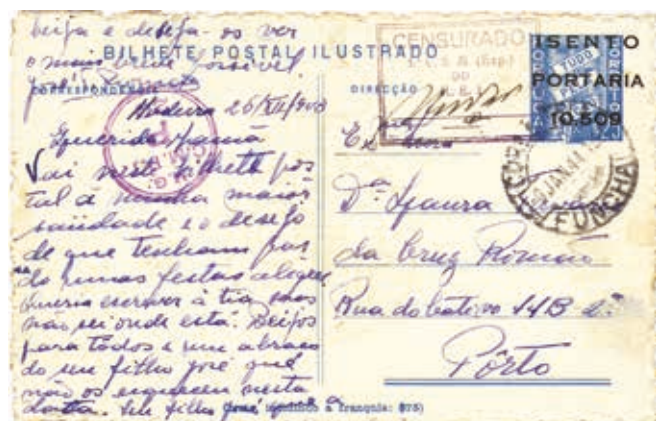 beija e deseja-os ver
o mais breve possível
José
BILHETE POSTAL ILUSTRADO
CORRESPONDENCIA
DIRECÇÃO
CENSURADO
ISENTO
PORTARIA
10.509
TUDO
JAN.44
FUNCHAL
Madeira 26/XII/943
Querida Mamã
Vai neste bilhete pos
tal a minha maior
saudade e o desejo
de que tenham pas
do umas festas alegres
Queria escrever á tia mas
não sei onde está. Beijos
para todos e um abraço
do seu filho José que
não os esquece nesta
data. Seu filho José que a
franquia: $75)
D.ª Laura
da Cruz Romão
Rua do
Pôrto